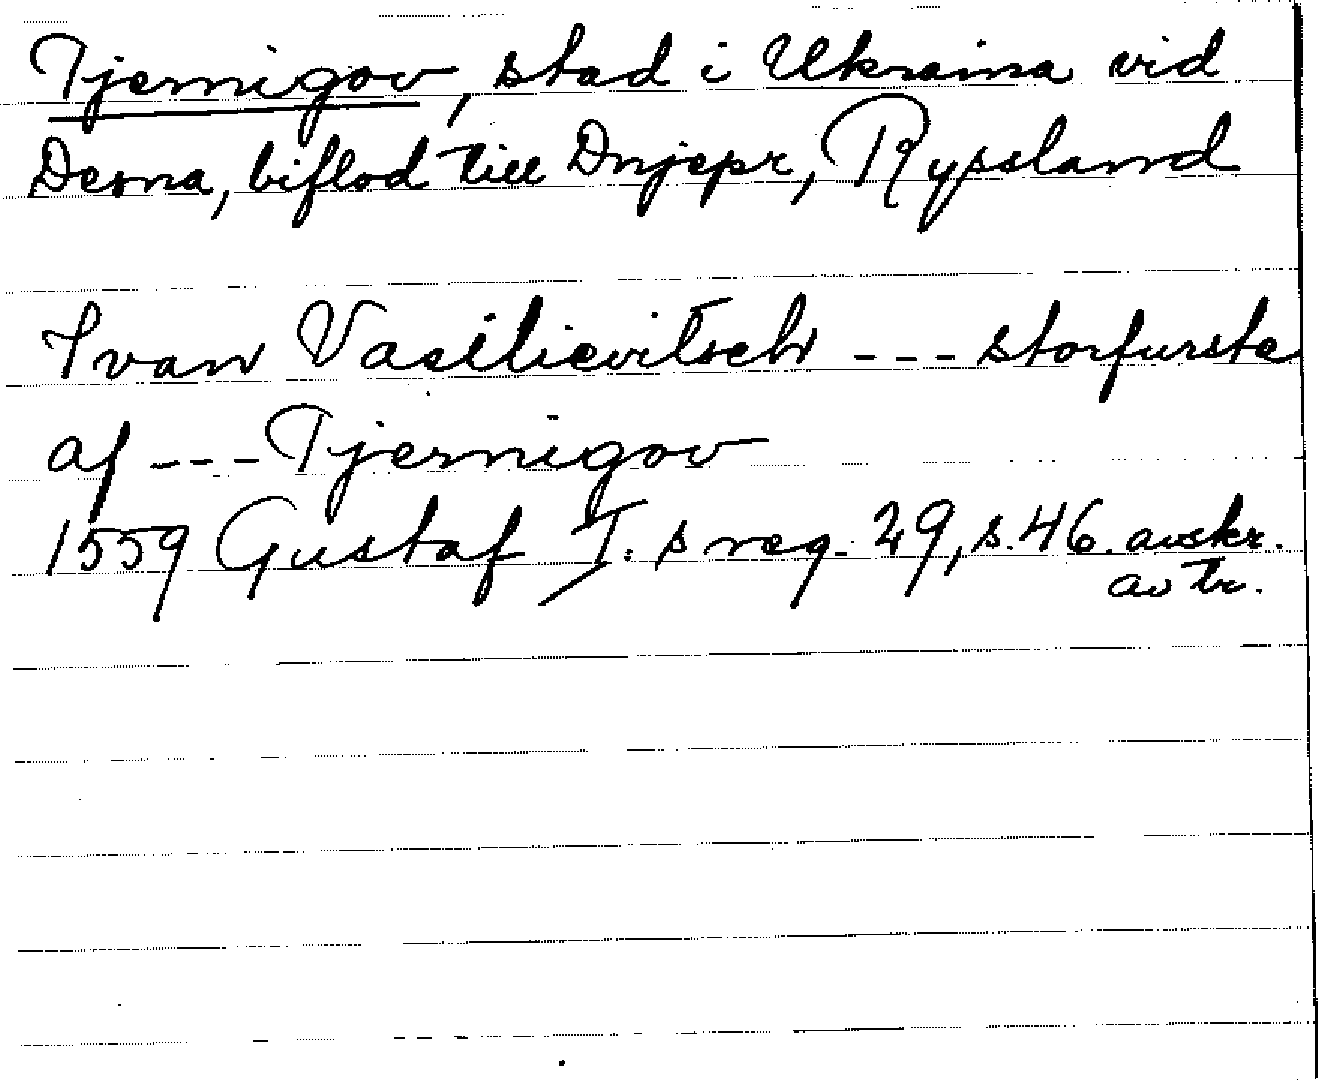 Tjernigov, stad i Ukraina vid
Desna, biflod till Dnjepr, Ryssland
Ivan Vasilievitsch --- storfurste
af --- Tjernigov
1559 Gustaf I:s reg. 29, s. 46. avskr.
av tr.